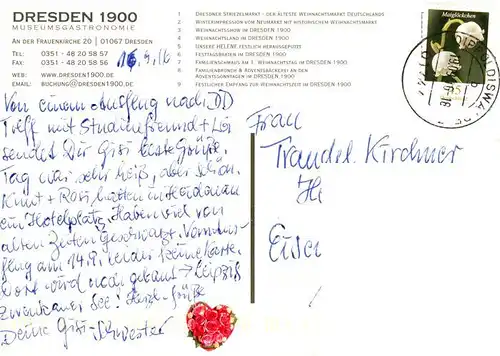 DRESDEN 1900
MUSEUMSGASTRONOMIE
AN DER FRAUENKIRCHE 20 | 01067 DRESDEN
TEL: 0351 - 48 20 58 57
FAX: 0351 - 48 20 58 58
WEB: WWW.DRESDEN1900.DE
EMAIL: BUCHUNG@DRESDEN1900.DE
1 DRESDNER STRIEZELMARKT - DER ÄLTESTE WEIHNACHTSMARKT DEUTSCHLANDS
2 WINTERIMPRESSION VOM NEUMARKT MIT HISTORISCHEM WEIHNACHTSMARKT
3 WEIHNACHTSSHOW IM DRESDEN 1900
4 WEIHNACHTSLAND IM DRESDEN 1900
5 UNSERE HELENE FESTLICH HERAUSGEPUTZT
6 FESTTAGSBRATEN IM DRESDEN 1900
7 FAMILIENSCHMAUS AM 1. WEIHNACHTSTAG IM DRESDEN 1900
8 FAMILIENBRUNCH & ADVENTSBÄCKEREI AN DEN
ADVENTSSONNTAGEN IM DRESDEN 1900
9 FESTLICHER EMPFANG ZUR WEIHNACHTSZEIT IM DRESDEN 1900
Maiglöckchen
Von einem Ausflug nach DD
Treff mit Studienfreund +
sendet Dir Gisi liebste Grüße.
Tag war sehr heiß, aber schön.
Knut + Rosi hatten in
ein Hotelplatz. Haben viel von
alten Zeiten geschwatzt.
am 14.9.
noch gebaut → Leipzig
Zwenkauer See! Herzl. Grüße
Deine Gisi - Schwester
Frau
Traudel Kirchner
He
Eisen